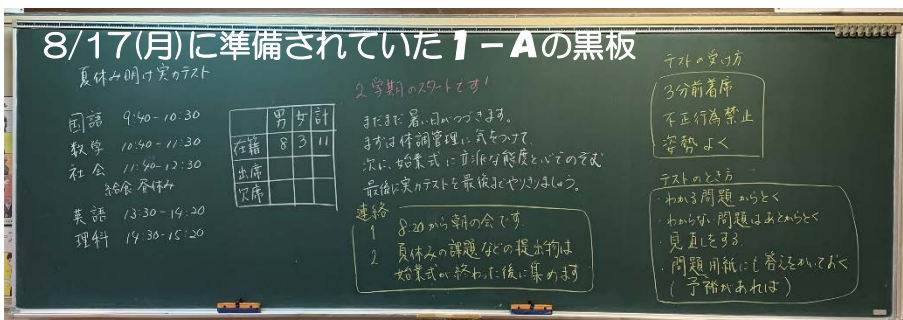 8/17(月)に準備されていた1-Aの黒板
夏休み明け実力テスト
国語 9:40-10:30
数学 10:40-11:30
社会 11:40-12:30
給食 昼休み
英語 13:30-14:20
理科 14:30-15:20
男 女 計
在籍 8 3 11
出席
欠席
2学期のスタートです!
まだまだ暑い日がつづきます。
まずは体調管理に気をつけて、
次に、始業式に立派な態度と心でのぞむ
最後に実力テストを最後までやりきりましょう。
連絡
1 8:20から朝の会です
2 夏休みの課題などの提出物は
始業式が終わった後に集めます
テストの受け方
3分前着席
不正行為禁止
姿勢よく
テストのとき方
・わかる問題からとく
・わからない問題はあとからとく
・見直しをする
・問題用紙にも答えをかいておく
(予裕があれば)